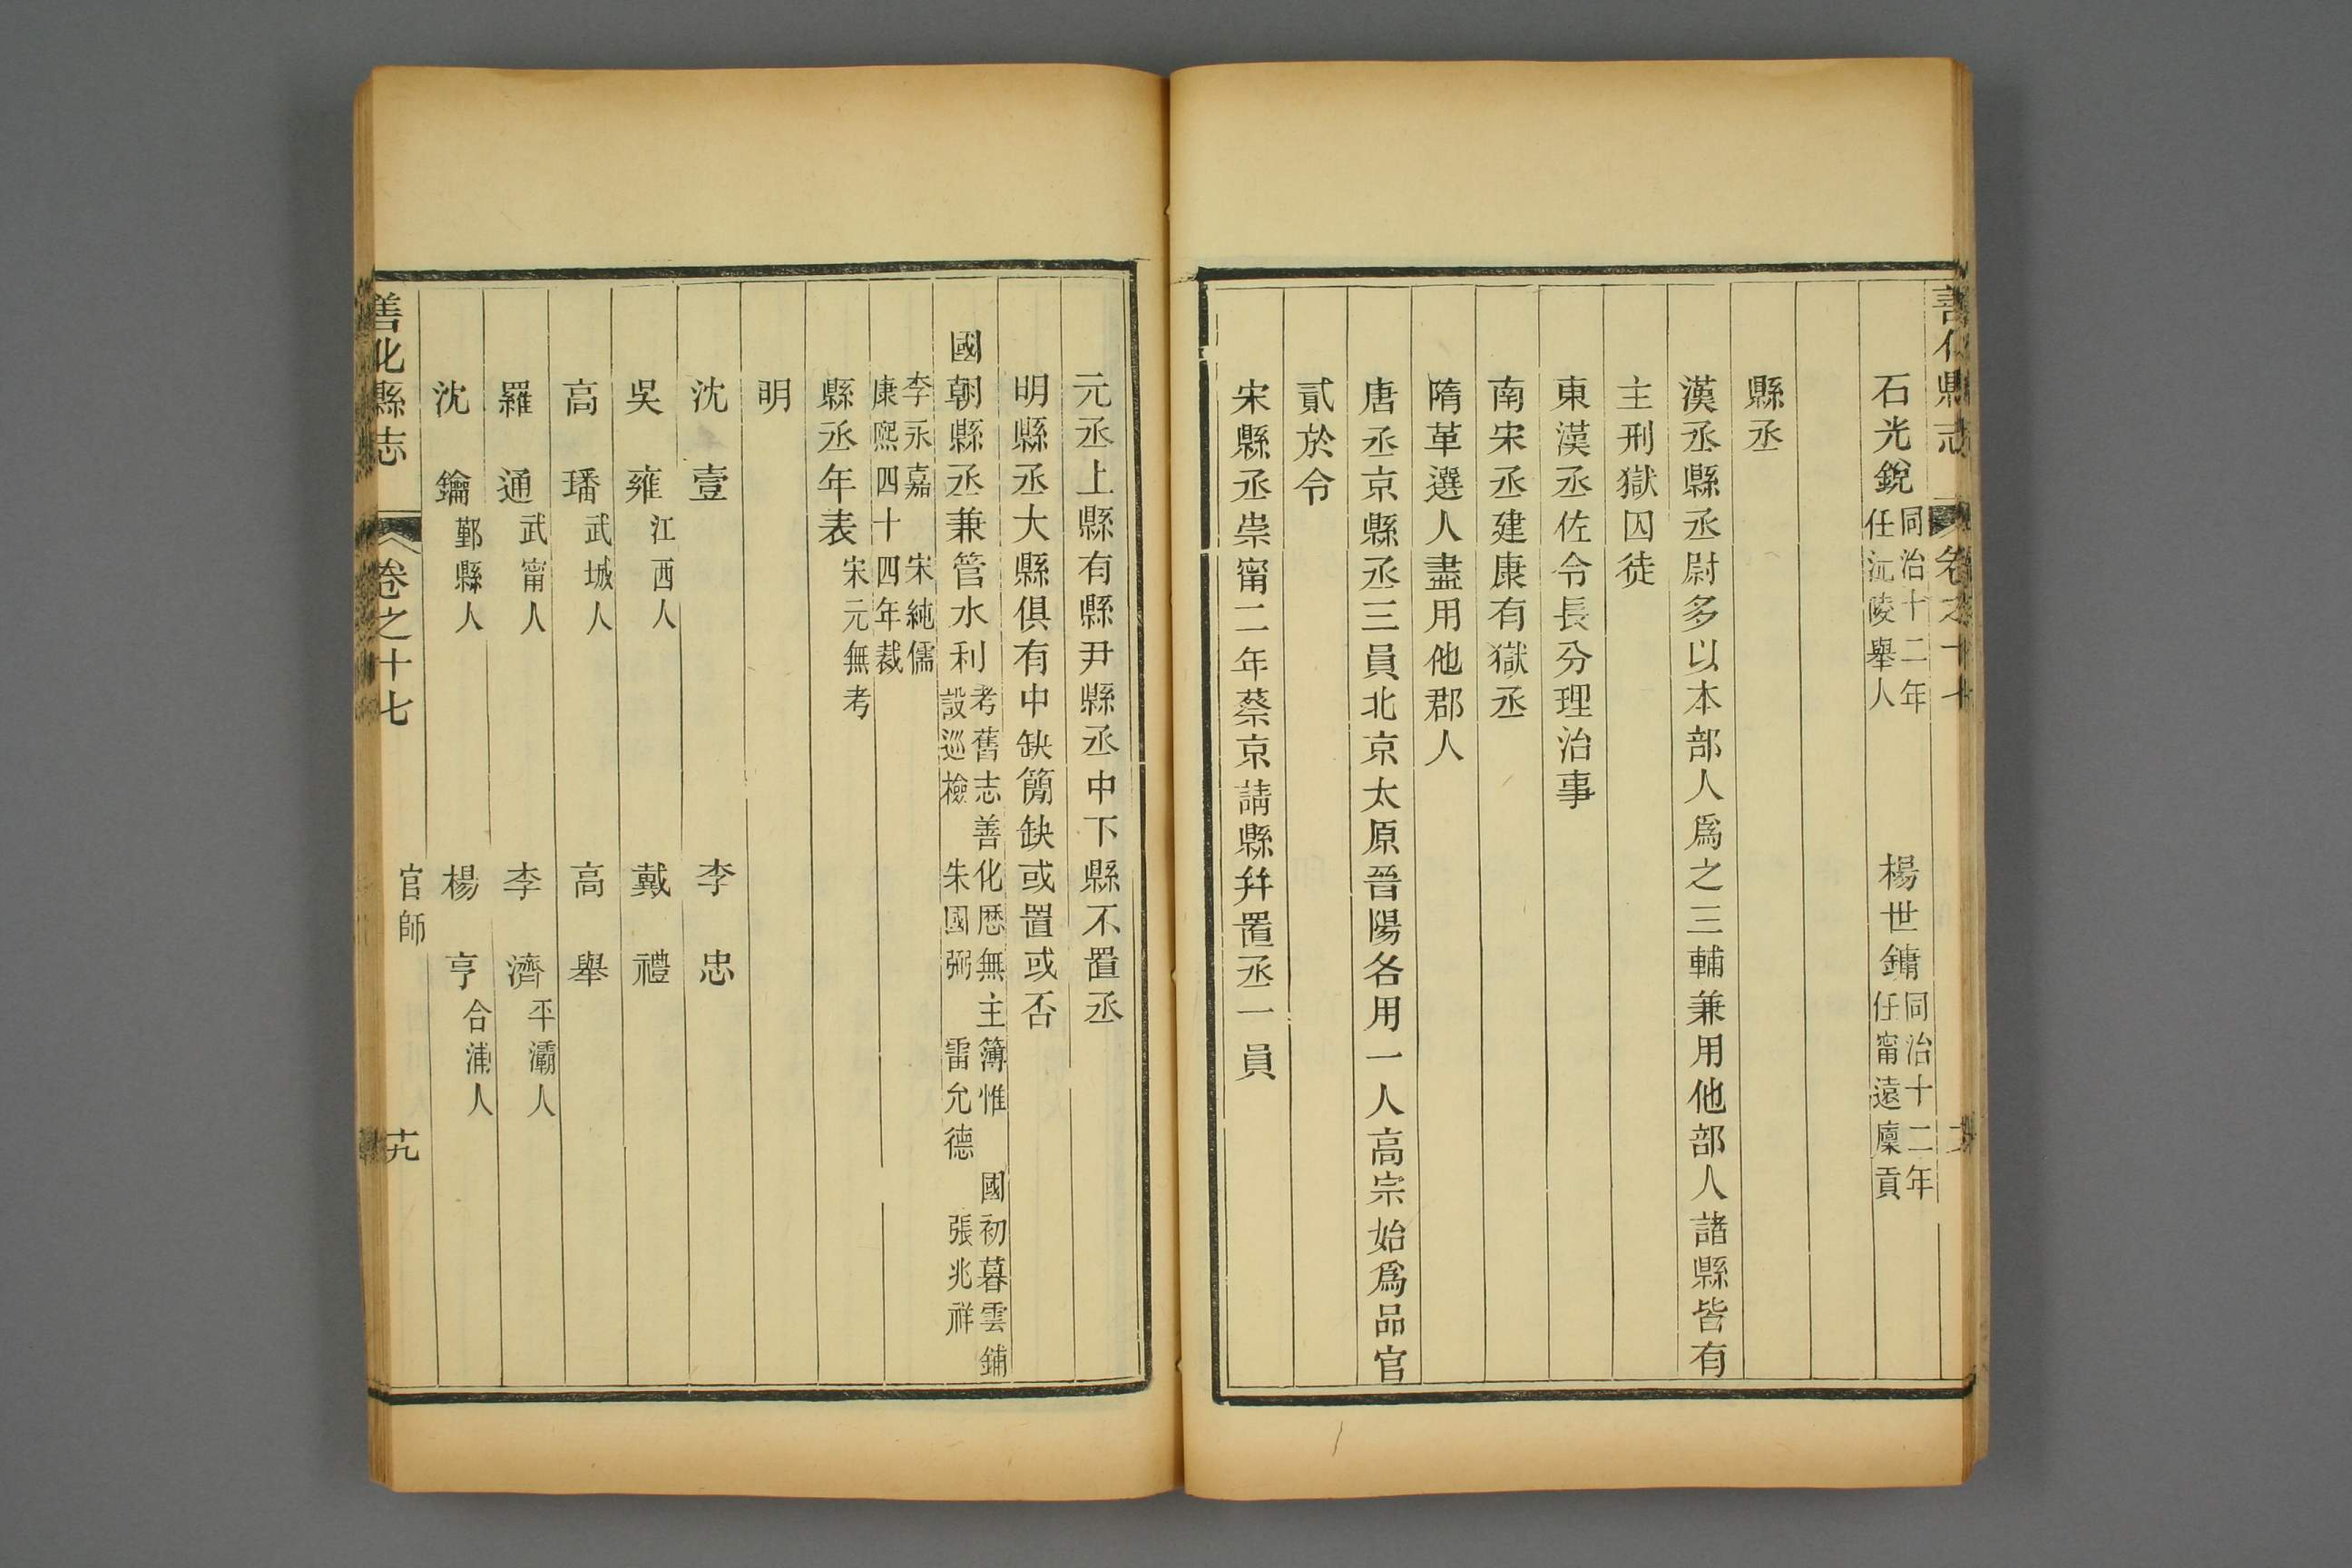 善化縣志 卷之十七
石光銳 同治十二年任沅陵舉人 楊世鏞 同治十二年任甯遠廩貢
縣丞
漢丞縣丞尉多以本部人爲之三輔兼用他部人諸縣皆有
主刑獄囚徒
東漢丞佐令長分理治事
南宋丞建康有獄丞
隋革選人盡用他郡人
唐丞京縣丞三員北京太原晉陽各用一人高宗始爲品官
貳於令
宋縣丞崇甯二年蔡京請縣幷置丞一員
元丞上縣有縣尹縣丞中下縣不置丞
明縣丞大縣俱有中缺簡缺或置或否
國朝縣丞兼管水利 考舊志善化歷無主簿惟 國初暮雲鋪
設巡檢 朱國弼 雷允德 張兆祥
李永嘉 宋純儒
康熙四十四年裁
縣丞年表 宋元無考
明
沈壹 李忠
吳雍 江西人 戴禮
高璠 武城人 高舉
羅通 武甯人 李濟 平灞人
沈鑰 鄞縣人 楊亨 合浦人
善化縣志 卷之十七 官師 十九